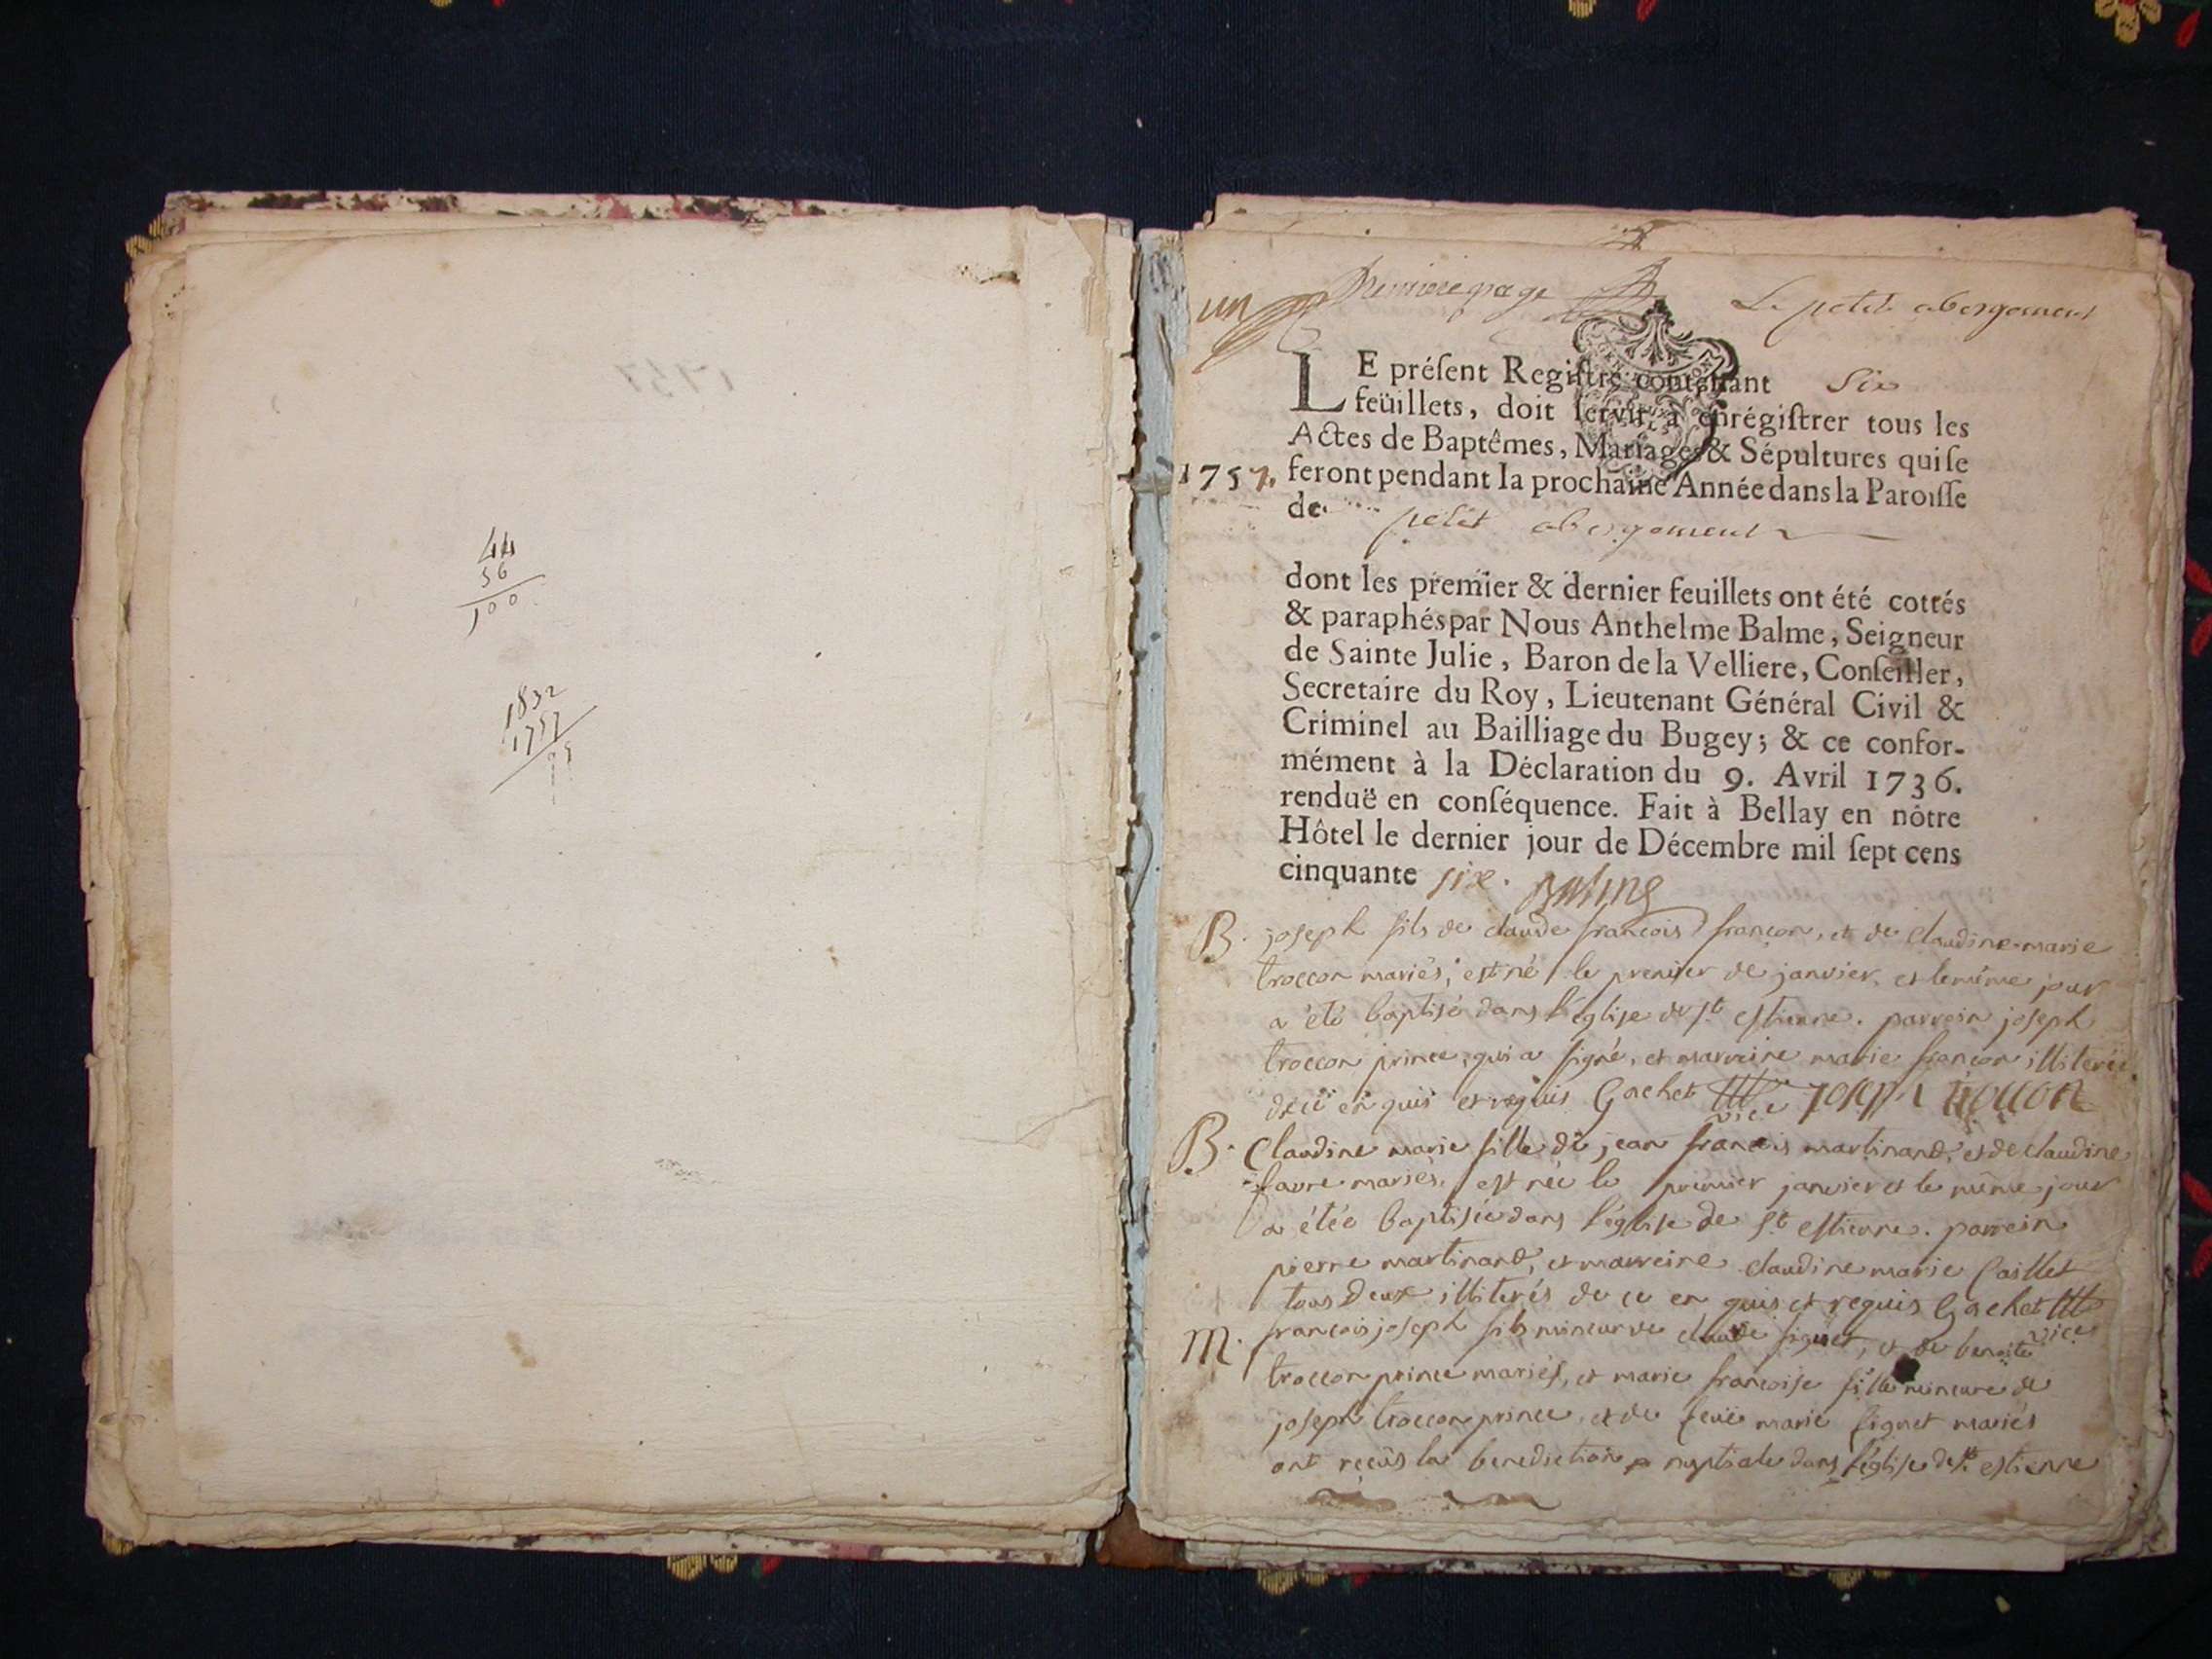 44
56
100
1832
1757
75
un
Premiere page
Le petit abergement
LE préſent Regiſtre contenant Six
feüillets, doit ſervir à enrégiſtrer tous les
Actes de Baptêmes, Mariages & Sépultures qui ſe
1757. feront pendant la prochaine Année dans la Paroiſſe
de petit abergement
dont les premier & dernier feuillets ont été cottés
& paraphés par Nous Anthelme Balme, Seigneur
de Sainte Julie, Baron de la Velliere, Conſeiller,
Secretaire du Roy, Lieutenant Général Civil &
Criminel au Bailliage du Bugey; & ce confor-
mément à la Déclaration du 9. Avril 1736.
renduë en conſéquence. Fait à Bellay en nôtre
Hôtel le dernier jour de Décembre mil ſept cens
cinquante six. Balme
B. joseph fils de claude francois françon, et de claudine-marie
troccon mariés, est né le premier de janvier, et le même jour
a été baptisé dans l'église de st estienne. parrein joseph
troccon prince, qui a signé, et marreine marie françon illiterée
de ce enquis et requis Gachet vice joseph troccon
B. Claudine marie fille de jean francois martinand, et de claudine
favre mariés, est née le premier janvier et le même jour
a étée baptisée dans l'église de st estienne. parrein
pierre martinand, et marreine claudine marie Caillet
tous deux illiterés de ce en quis et requis Gachet vice
M. francois joseph fils mineur de claude signet, et de benoite
troccon prince mariés, et marie francoise fille mineure de
joseph troccon prince, et de feüe marie signet mariés
ont reçûs la benediction nuptiale dans l'église de st estienne